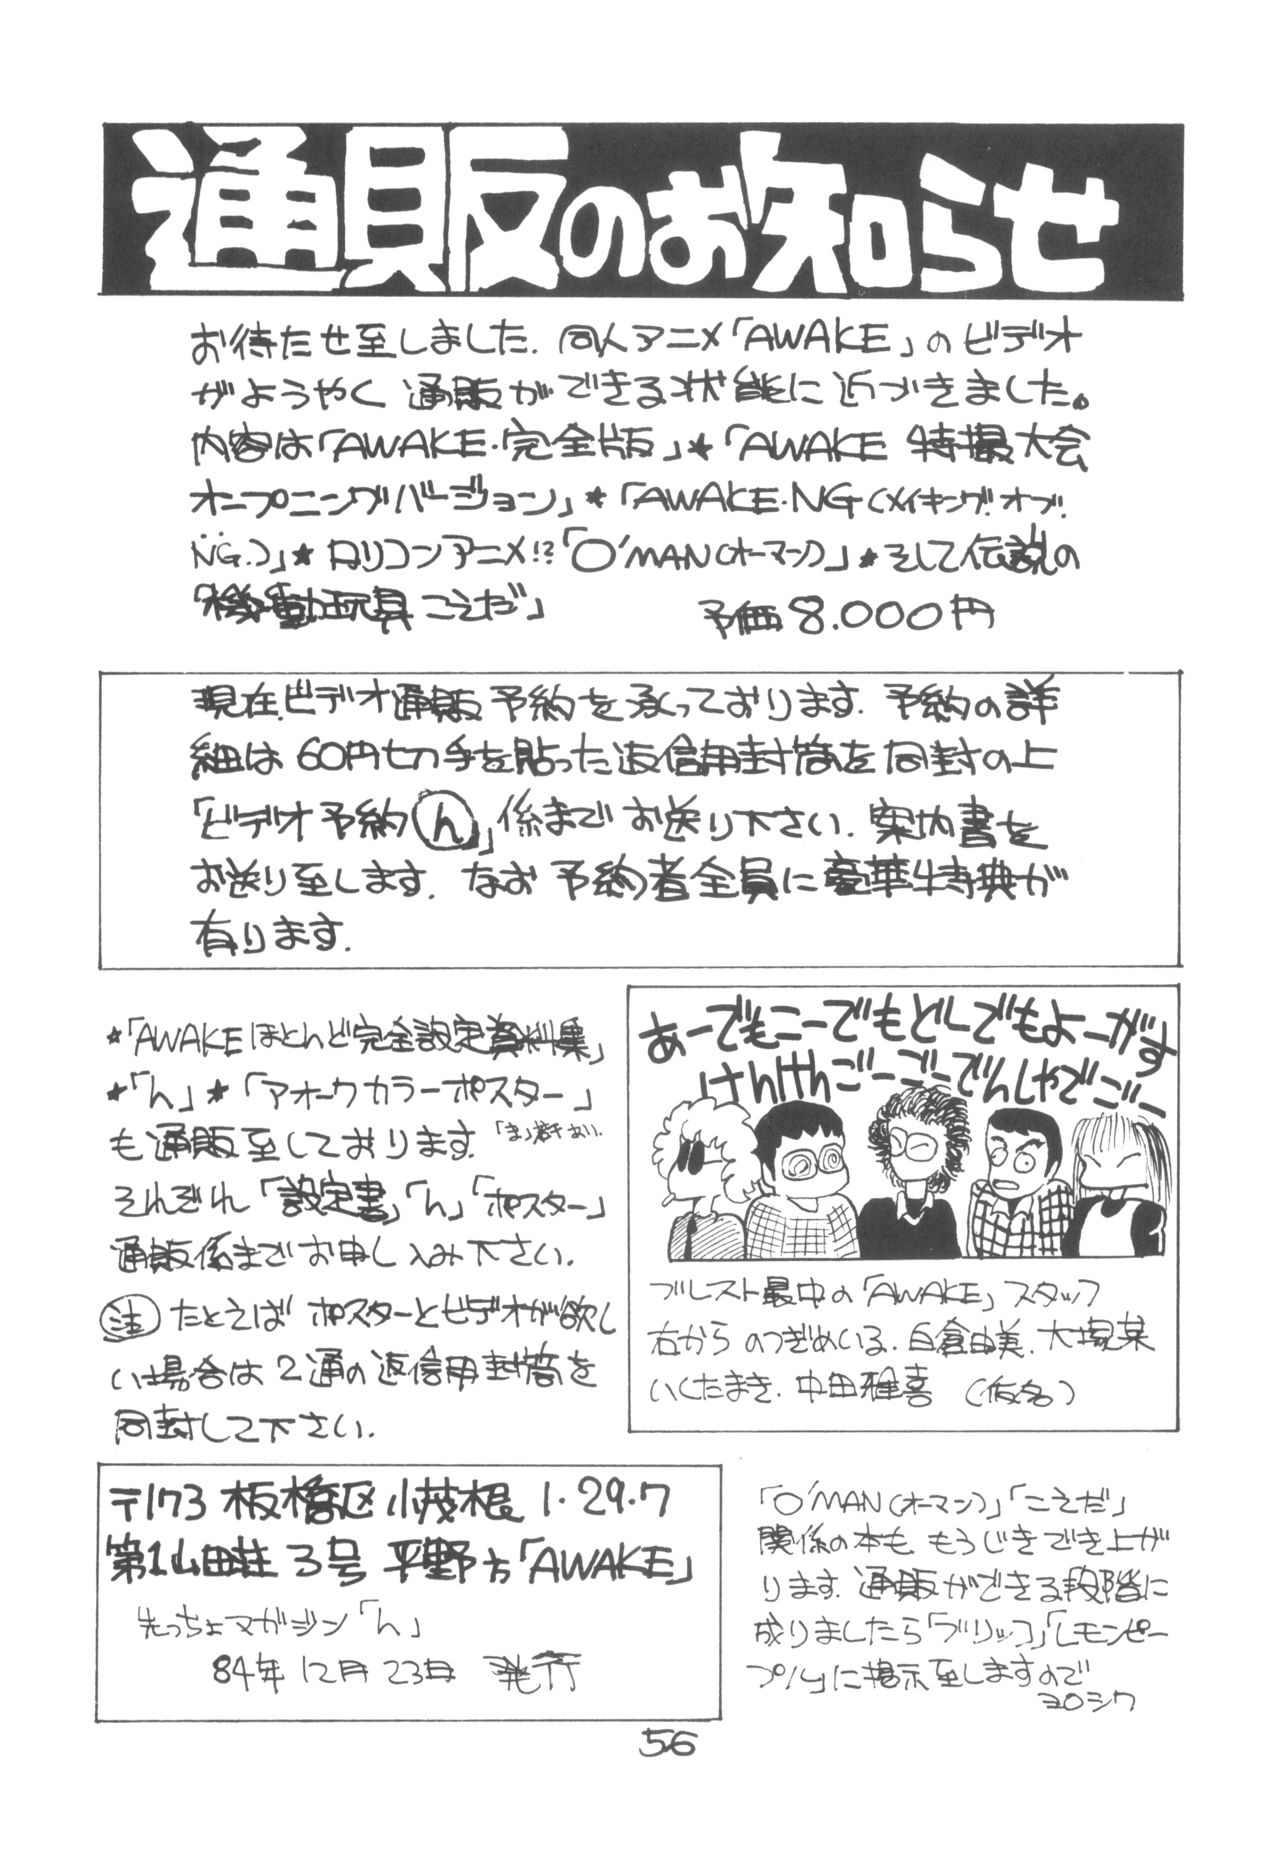 通販のお知らせ
お待たせ至しました. 同人アニメ「AWAKE」のビデオ
がようやく 通販ができる状態に近づきました。
内容は「AWAKE・完全版」★「AWAKE 特撮大会
オープニングバージョン」★「AWAKE・NG(メイキング・オブ・
NG.)」★ロリコンアニメ!?「O'MAN(オーマン)」★そして伝説の
「機動玩具こえだ」 予価8.000円
現在.ビデオ通販予約を承っております. 予約の詳
細は60円切手を貼った返信用封筒を同封の上
「ビデオ予約ん」係までお送り下さい. 案内書を
お送り至します. なお予約者全員に豪華特典が
有ります.
★「AWAKEほとんど完全設定資料集」
★「ん」★「アオークカラーポスター」
も通販至しております.
それぞれ「設定書」「ん」「ポスター」
通販係までお申し込み下さい.
注 たとえば ポスターとビデオが欲し
い場合は2通の返信用封筒を
同封して下さい.
あーでもこーでもどーでもよーがす
けんけんごーごーでんしゃでごー
ブレスト最中の「AWAKE」スタッフ
右から のつぎめいる. 白倉由美. 大塚某
いくたまき. 中田雅喜 (仮名)
〒173 板橋区小茂根1・29・7
第1山田荘3号 平野方「AWAKE」
先っちょマガジン「ん」
84年12月23日 発行
「O'MAN(オーマン)」「こえだ」
関係の本も もうじきでき上が
ります. 通販ができる段階に
成りましたら「ブリッコ」「レモンピー
プル」に掲示至しますので
ヨロシク
56